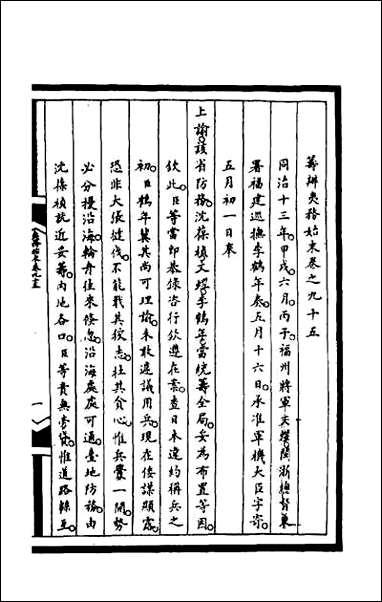 籌辦夷務始末卷之九十五
同治十三年甲戌六月丙子福州將軍文煜閩浙總督兼
署福建巡撫李鶴年奏五月十六日承准軍機大臣字寄
五月初一日奉
上諭該省防務沈葆楨文煜李鶴年當統籌全局妥為布置等因
欽此臣等當即恭錄咨行欽遵在案查日本違約稱兵之
初臣鶴年冀其尚可理諭未敢遽議用兵現在倭謀顯露
恐非大張撻伐不能戢其狡志杜其貪心惟兵釁一開勢
必分擾沿海輪舟往來倏忽沿海處處可通臺地防務由
沈葆楨就近妥籌內地各口臣等責無旁貸惟道路綿亙
一